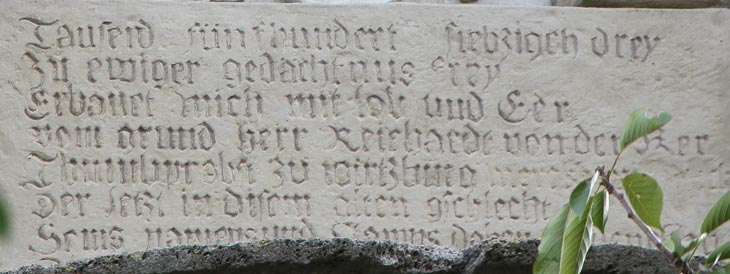 Tausend fünfhundert siebzigch drey
Zu ewiger gedechtnus frey
Erbauet mich mit lob und Eer
vom grund Herr Reichardt von der Ker
Thumbprobst zu wirtzburg
Der letzt in disem alten gschlecht
Seins namens und Stams